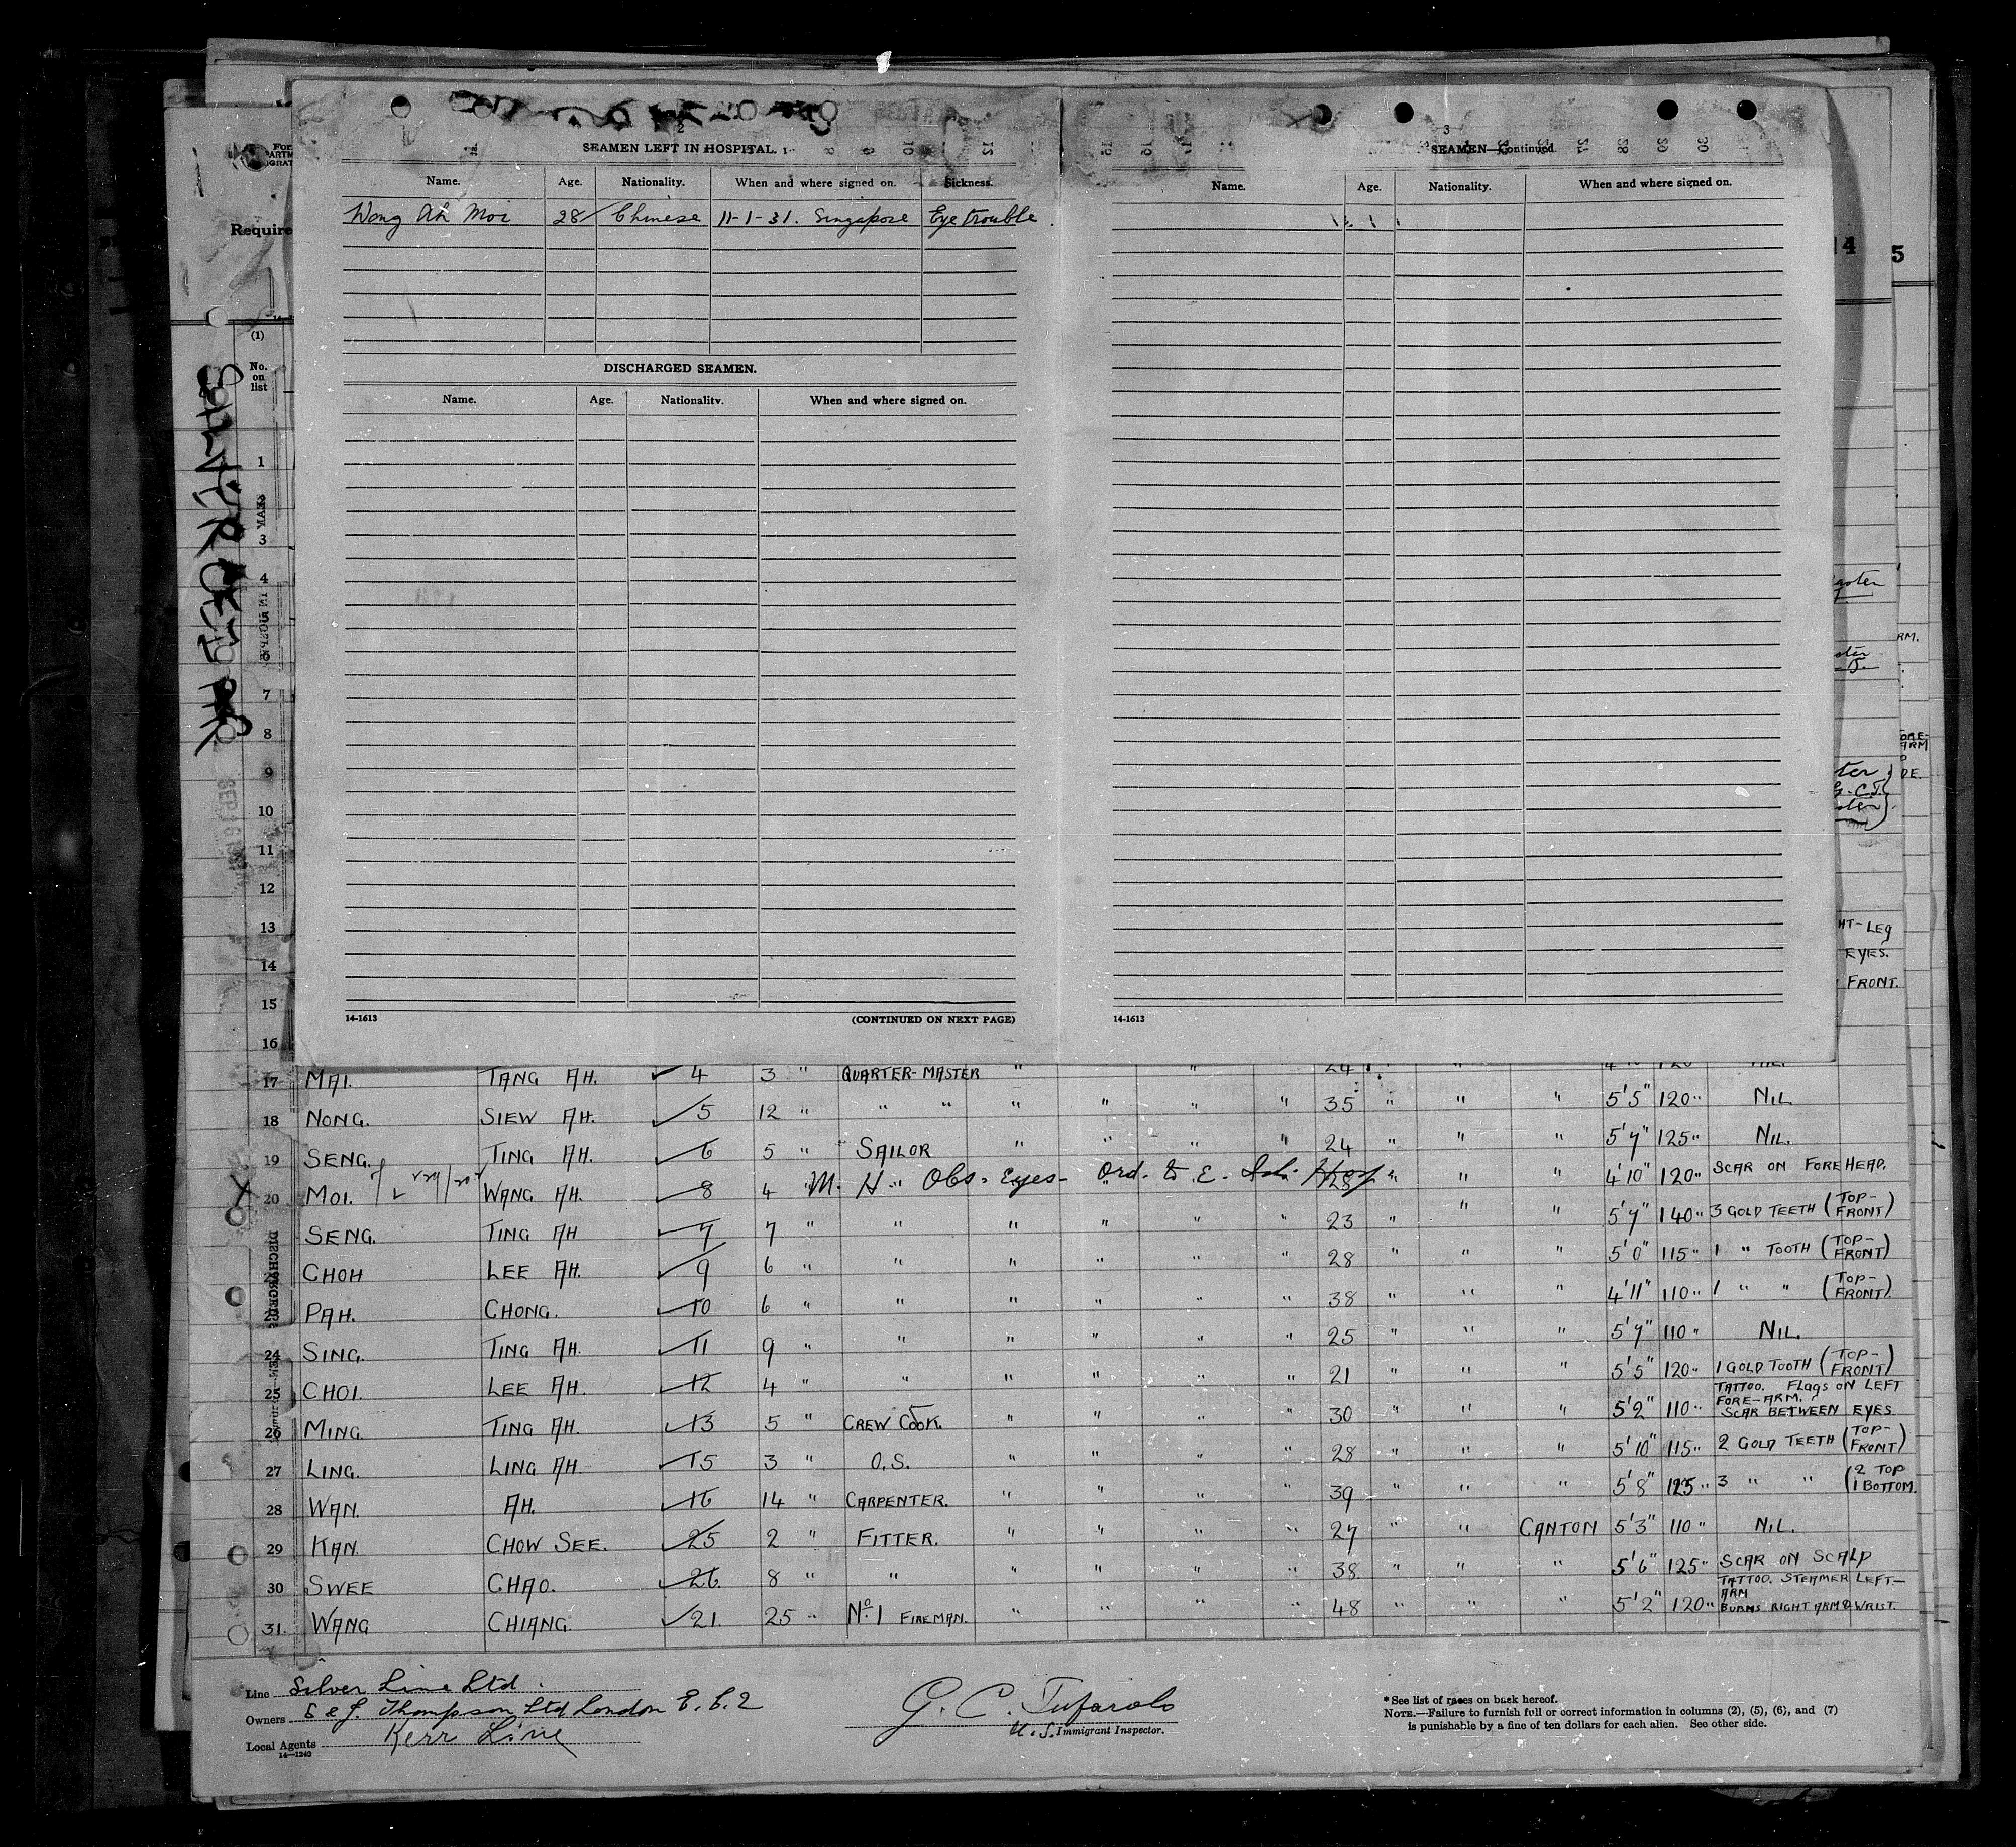 2
SEAMEN LEFT IN HOSPITAL.
Name. Age. Nationality. When and where signed on. Sickness.
Wong Ah Moi 28 Chinese 11-1-31. Singapore Eye trouble
DISCHARGED SEAMEN.
Name. Age. Nationality. When and where signed on.
14-1613 (CONTINUED ON NEXT PAGE)
3
SEAMEN—Continued.
Name. Age. Nationality. When and where signed on.
14-1613
Require
14
5
(1)
No.
on
list
1
3
4
7
8
9
10
11
12
13
14
15
16
HT-LEG
EYES.
FRONT.
17 MAI. TANG AH. ✓ 4 3 " QUARTER-MASTER " " 24 "
18 NONG. SIEW AH. ✓ 5 12 " " " " " " " 35 " " " 5'5" 120 " NIL.
19 SENG. TING AH. ✓ 6 5 " SAILOR " " " " 24 " " " 5'7" 125 " NIL.
20 MOI. WANG AH. ✓ 8 4 " M. H. Obs. Eyes- Ord. to E. Isl. Hosp. 28 " " " 4'10" 120 " SCAR ON FOREHEAD.
SENG. TING AH ✓ 7 7 " " " " " " 23 " " " 5'7" 140 " 3 GOLD TEETH (TOP-FRONT)
CHOH LEE AH. ✓ 9 6 " " " " " " 28 " " " 5'0" 115 " 1 " TOOTH (TOP-FRONT)
PAH. CHONG. ✓ 10 6 " " " " " " 38 " " " 4'11" 110 " 1 " " (TOP-FRONT)
24 SING. TING AH. ✓ 11 9 " " " " " " 25 " " " 5'7" 110 " NIL.
25 CHOI. LEE AH. ✓ 12 4 " " " " " " 21 " " " 5'5" 120 " 1 GOLD TOOTH (TOP-FRONT)
26 MING. TING AH. ✓ 13 5 " CREW COOK. " " " " 30 " " " 5'2" 110 " TATTOO. FLAGS ON LEFT FORE-ARM. SCAR BETWEEN EYES.
27 LING. LING AH. ✓ 15 3 " O.S. " " " " 28 " " " 5'10" 115 " 2 GOLD TEETH (TOP-FRONT)
28 WAN. AH. ✓ 16 14 " CARPENTER. " " " " 39 " " " 5'8" 125 " 3 " " (2 TOP 1 BOTTOM.
29 KAN. CHOW SEE. ✓ 25 2 " FITTER. " " " " 27 " " CANTON 5'3" 110 " NIL.
30 SWEE CHAO. ✓ 26. 8 " " " " " " 38 " " " 5'6" 125 " SCAR ON SCALP
31. WANG CHIANG. ✓ 21. 25 " No. 1 FIREMAN. " " " " 48 " " " 5'2" 120 " TATTOO. STEAMER LEFT-ARM BURNS RIGHT ARM & WRIST.
Line Silver Line Ltd.
Owners S & J. Thompson Ltd London E.C.2
Local Agents Kerr Line
14—1240
U.S. Immigrant Inspector.
* See list of races on back hereof.
NOTE.—Failure to furnish full or correct information in columns (2), (5), (6), and (7)
is punishable by a fine of ten dollars for each alien. See other side.